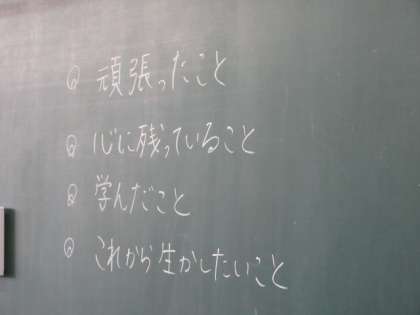 ◎ 頑張ったこと
◎ 心に残っていること
◎ 学んだこと
◎ これから生かしたいこと